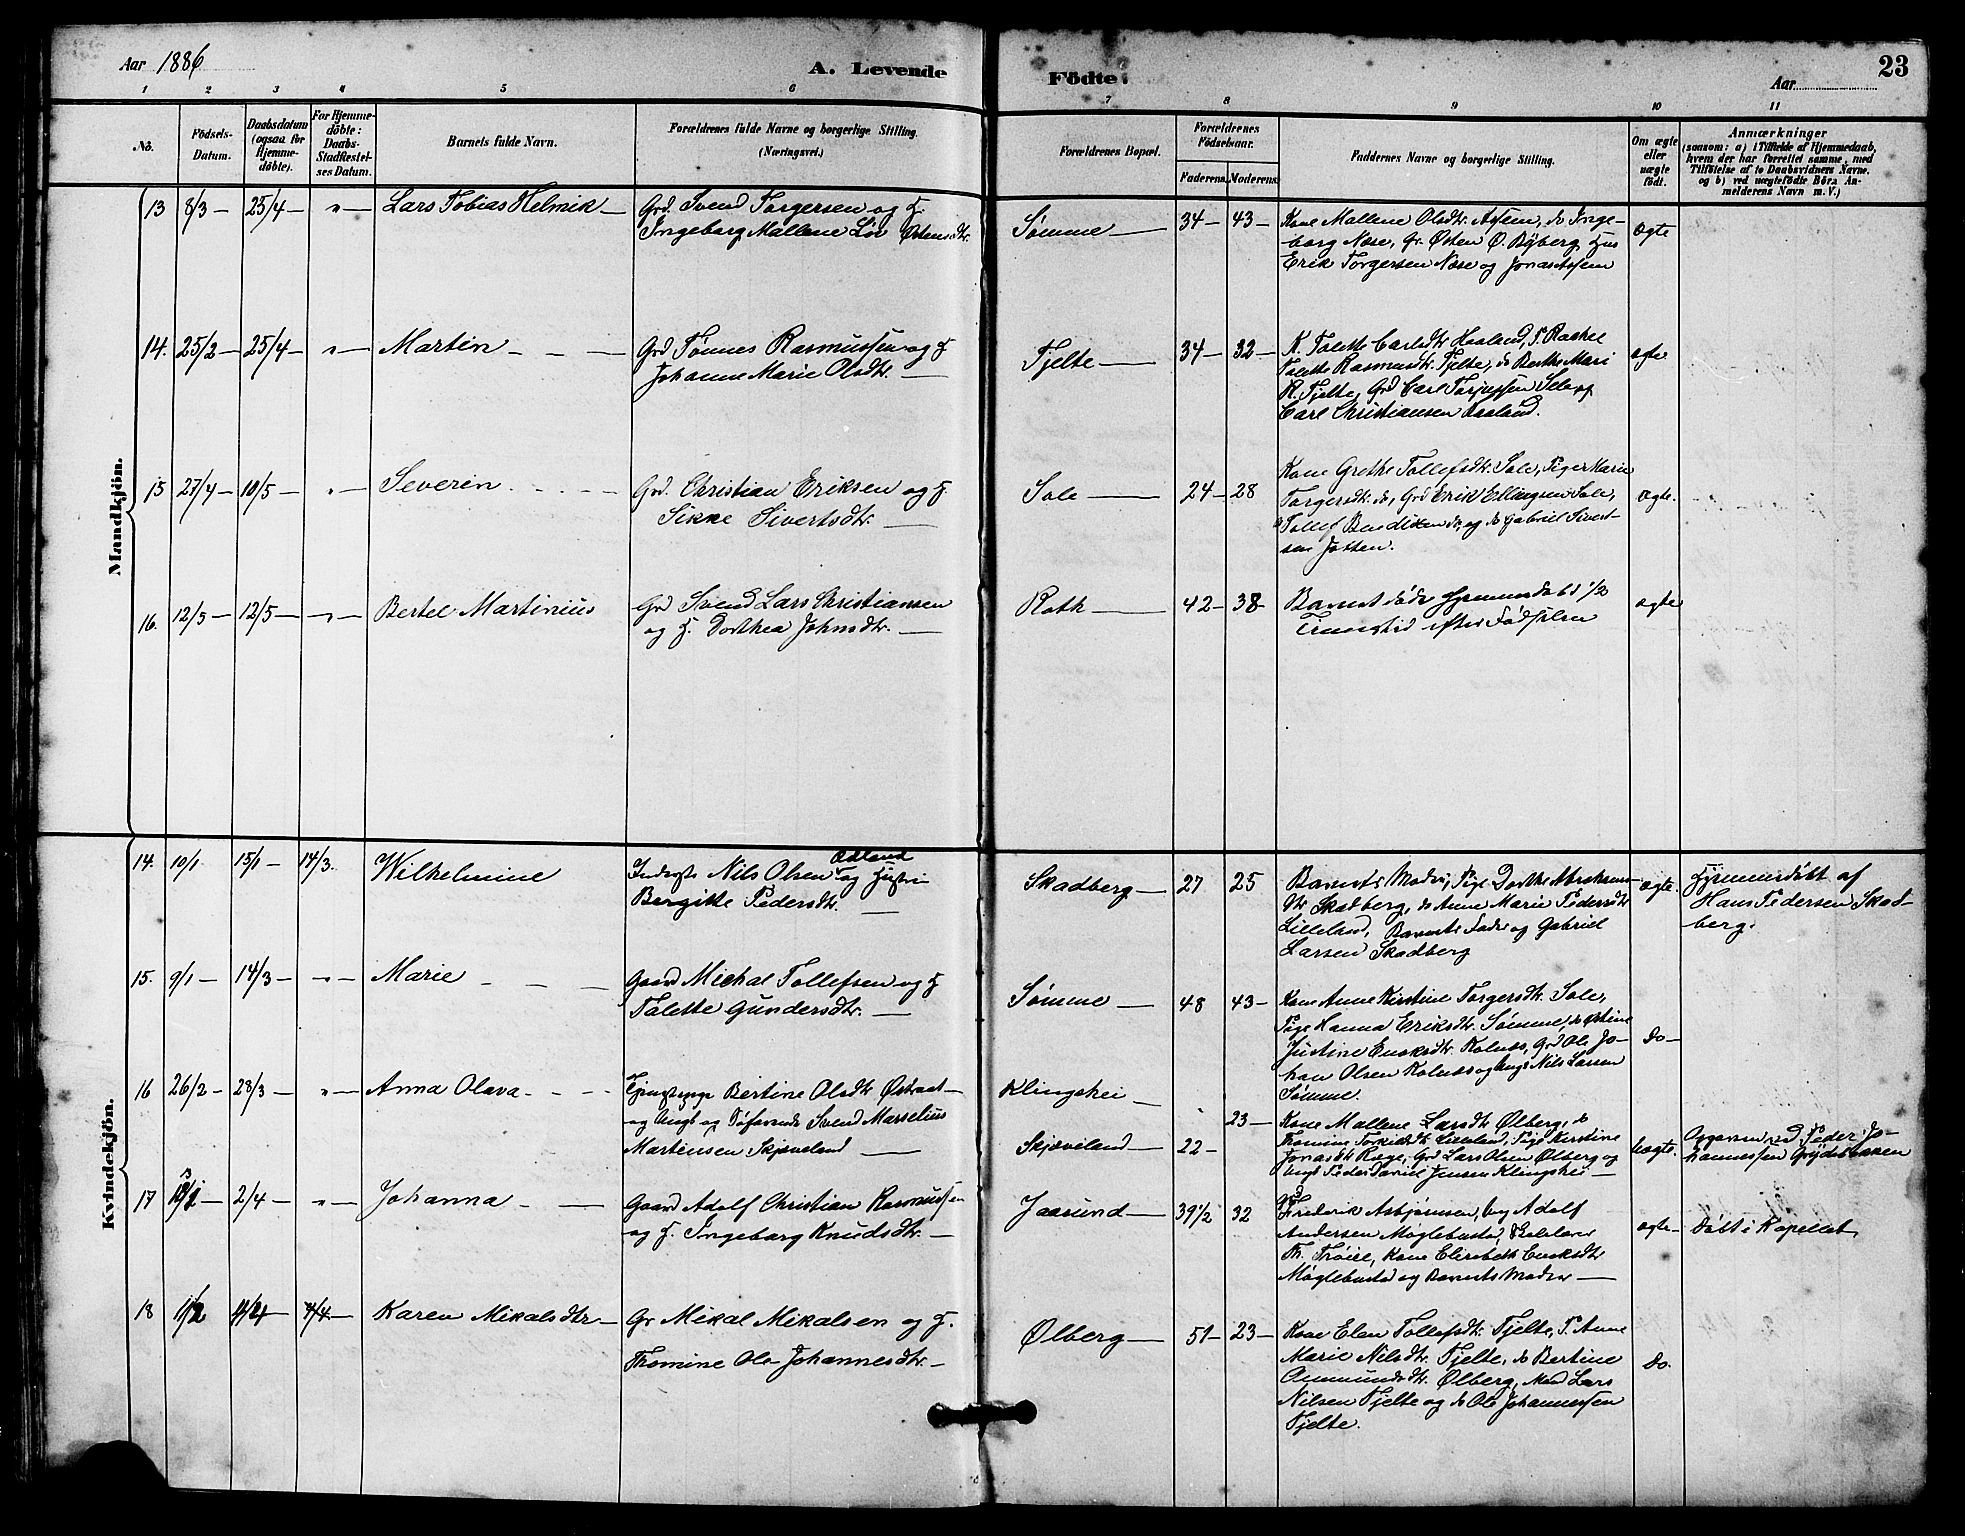 Aar 1886
A. Levende
Födte.
Aar
23
1 2 3 4 5 6 7 8 9 10 11
No.
Födsels-
Datum.
Daabsdatum
(ogsaa for
Hjemme-
döbte).
For Hjemme-
döbte:
Daabs-
Stadfæstel-
ses Datum.
Barnets fulde Navn.
Forældrenes fulde Navne og borgerlige Stilling.
(Næringsvei.)
Forældrenes Bopæl.
Forældrenes
Födselsaar.
Faderens. Moderens.
Faddernes Navne og borgerlige Stilling.
Om ægte
eller
uægte
födt.
Anmærkninger
(saasom: a) i Tilfælde af Hjemmedaab,
hvem der har forrettet samme, med
Tilföielse af to Daabsvidners Navne.
og b) ved uægtefödte Börn An-
melderens Navn m. V.)
Mandkjön.
13 8/3 — 25/4 — " — Lars Tobias Helmik —
Grd. Svend Torgersen og H.
Ingeborg Mallene Østensdtr.
Sømme — 34 — 43 —
Kone Mallene Olsdtr. do Inge-
borg Næse, Gr. Østen Ø. Byberg,
Erik Torgersen Næse og Jonas
Ægte
14. 25/2 — 25/4 — " — Martin — — —
Grd Tønnes Rasmussen og H
Johanne Marie Olsdtr. —
Tjelte — 34 — 32 —
K. Talette Carlsdtr Haaland, P. Rachel
Talette Rasmusdtr. Tjelte, do Berthe Mari
R. Tjelte, Grd Carl Torjussen Sele og
Carl Christiansen Haaland.
ægte
15 27/4 — 10/5 — " — Severin — — —
Grd. Christian Eriksen og H.
Sikke Sivertsdtr. —
Sole — 24 — 28
Kone Grethe Tollefsdtr. Sole, Piger Marie
Torgersdtr. do, Grd Erik Ellingsen Sole,
Tollef do, og do Gabriel Sivert-
sen Jotten.
Ægte.
16. 12/5 — 12/5 — " — Bertel Martinius
Grd Svend Lars Christiansen
og H. Dorthea Johnsdtr. —
Roth — 42 — 38
Barnet døde 1/2
efter Fødselen
ægte
Kvindekjön.
14. 10/1. 15/1 — 14/3. Wilhelmine
Nils Olsen Ødland og Hustru
Bergitte Pedersdtr. —
Skadberg — 27 25
Barnets Moder, Pige Dorthe
dtr Skadberg, do Anne Marie Pedersdtr
Lilleland, Barnets Fader og Gabriel
Larsen Skadberg
Ægte.
Hjemmedøbt af
Hans Pedersen Skad-
berg.
15. 9/1 — 14/3 — " — Marie — — —
Gaard Michal Tollefsen og H
Talette Gundersdtr. —
Sømme — 48 43 —
Kone Anne Kirstine Torgersdtr. Sole,
Pige Hanna Eriksdtr. Sømme, do
Justine Kolnes, Grd Ole Jo-
han Olsen Kolnes og Ungk Nils Larsen
Sømme.
Do —
16 26/2 — 28/3 — " — Anna Olava — — —
Bertine Olsdtr Østraat —
og Ungk og Søfarende Svend Marselius
Martensen Skjæveland —
Klingshei —
Skjæveland — 22 — 23 —
Kone Mallene Larsdtr Ølberg, do
Thomine Lilleland, Pige Kirstine
Jonasdtr Ræge, Grd Lars Olsen Ølberg og
Ungk Peder Daniel Jensen Klingshei —
Uægte.
Opgiven ved Peder Jo-
hannessen
17 2/4 — " — Johanna — —
Gaard Adolf Christian Rasmussen
og H. Ingeborg Knudsdtr. —
Jaasund — 39 1/2 32
Frederik Asbjørnsen, Ung Adolf
Andersen Møglebustad,
Th. Trøie, Kone Elisabeth
Møglebustad og Barnets Moder —
ægte —
Døbt i Kapellet
18 Karen Mikalsdtr —
Gr Mikal Mikalsen og H.
Thomine Ole Johannesdtr. —
Ølberg — 51 — 23 —
Kone Elen Tollefsdtr. Tjelte, P. Anne
Marie Nilsdtr. Tjelte, do Bertine
Ommundsdtr. Ølberg, Mand Lars
Nilsen Tjelte og do Ole Johannessen
Tjelte.
Do.